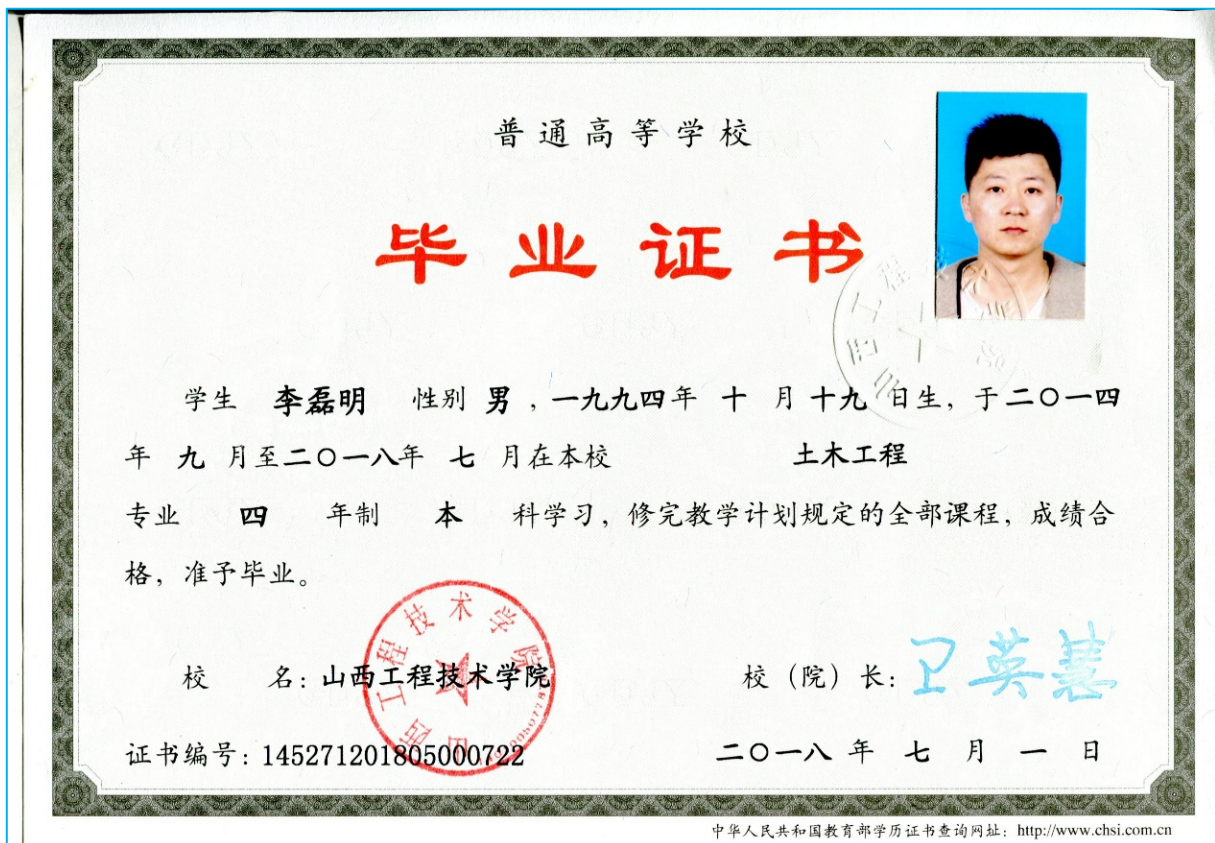 普通高等学校
毕业证书
学生 李磊明 性别 男 ，一九九四年 十 月 十九 日生，于二〇一四
年 九 月至二〇一八年 七 月在本校 土木工程
专业 四 年制 本 科学习，修完教学计划规定的全部课程，成绩合
格，准予毕业。
山西工程技术学院
校 名：山西工程技术学院 校（院）长：卫英慧
证书编号：145271201805000722 二〇一八 年 七 月 一 日
中华人民共和国教育部学历证书查询网址：http://www.chsi.com.cn